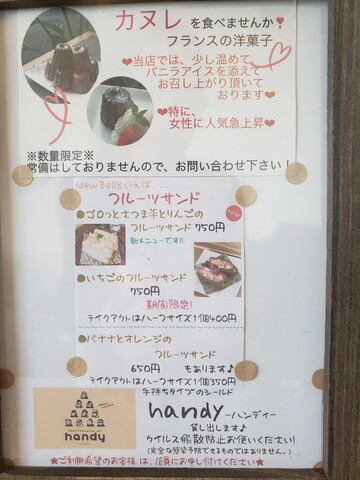 カヌレ を食べませんか❣
フランスの洋菓子
❤当店では、少し温めて
バニラアイスを添えて
お召し上がり頂いて
おります❤
❤特に、
女性に人気急上昇❤
※数量限定※
常備はしておりませんので、お問い合わせ下さい！
NewBellといえば...
フルーツサンド
●ゴロっとさつま芋とりんごの
フルーツサンド 750円
NEW
新メニューです!!
●いちごのフルーツサンド
750円
期間限定!
テイクアウトはハーフサイズ1個400円
●バナナとオレンジの
フルーツサンド
650円 もあります♪
テイクアウトはハーフサイズ1個350円
手持ちタイプのシールド
handy-ハンディー
貸し出します♪
ウイルス飛散防止お使いください!
(完全な感染予防できるものではありません。)
handy
★ご利用希望のお客様は、店員にお申し付けください★